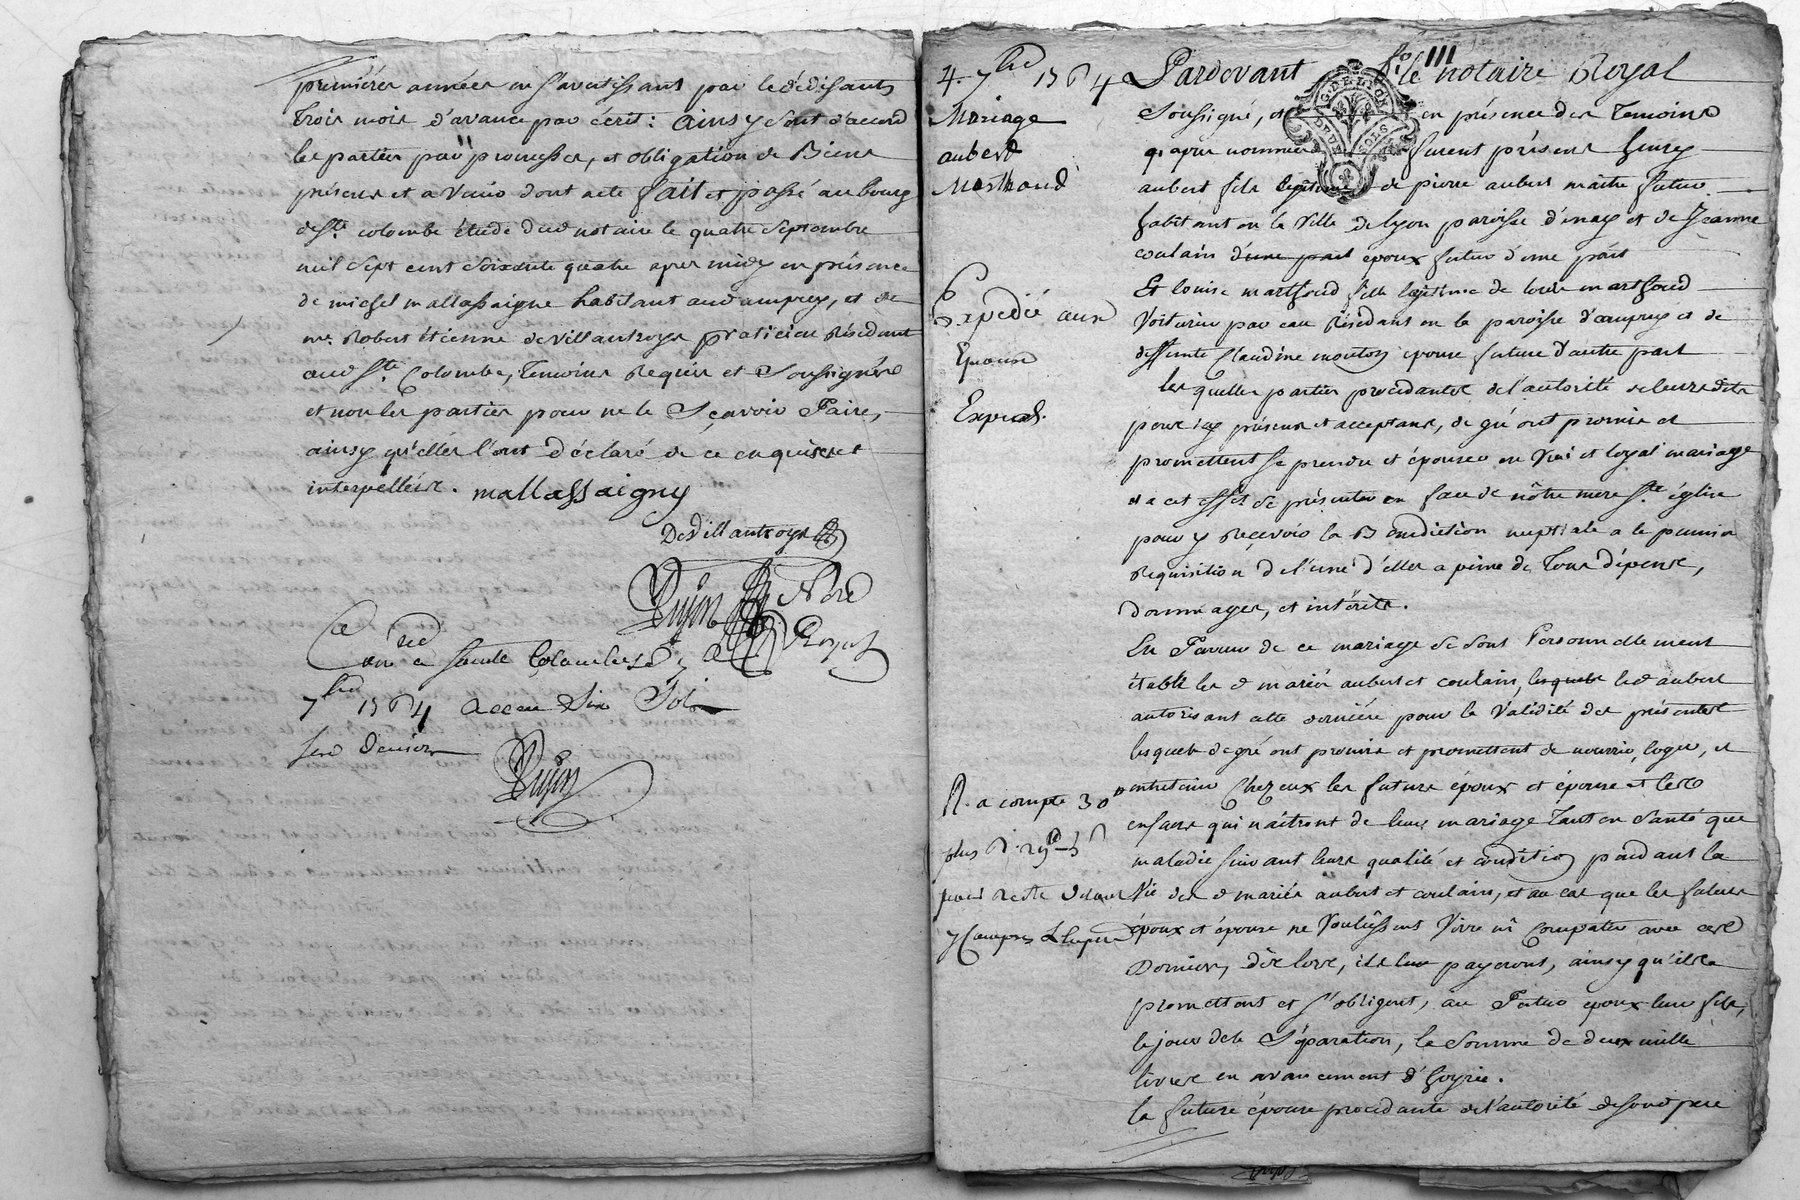 premiéres années en s'avertissant par lesdédisants
trois mois d'avance par écrit: Ainsy sont d'accord
les parties par promesses, et obligation de Biens
présens et a venir dont acte fait et passé au bourg
de Ste. colombe étude dud notaire le quatre septembre
mil sept cent soixante quatre apres midy en présence
de michel mallassaigne habitant aud ampuy, et de
me. Robert étienne devillantroys praticien Résidant
aud Ste Colombe, temoins Requis et Soussignés
et non les parties pour ne le Sçavoir Faire,
ainsy qu'elles l'ont déclaré de ce enquises et
interpellées. mallassaigny
DeVillantroys
Dujon Nore
Royal
Cé
à Sainte Colombe le
7bre 1764 Sols
Six deniers
Dujon
4. 7bre 1764
Mariage
aubert
Marthoud
Expedié aux
Epoux
Exped.
R. a compte 30
plus R.
pour reste
y Compris
fo. 111
G. DE LYON
DEUX SOLS
Pardevant le notaire Royal
Soussigné, et en présence des Temoins
cy après nommés furent présens henry
aubert fils légitime de pierre aubert maître
habitant en la Ville de lyon paroisse d'enay et de Jeanne
coulain d'une part époux futur d'une part
Et louise marthoud fille légitime de louis marthoud
Voiturier par eau Résidant en la paroisse d'ampuy et de
deffunte Claudine mouton epouse future d'autre part
lesquelles parties procédantes de l'autorité de leursdits
peres icy présens et acceptans, de gré ont promis et
promettent se prendre et épouser en Vrai et loyal mariage
et a cet effet se présenter en face de nôtre mere Ste église
pour y Reçevoir la Bénédiction nuptiale a la premier
Requisition de l'une d'elles a peine de Tous dépens,
dommages, et intérêts.
En Faveur de ce mariage se sont Personnellement
établis les d mariés aubert et coulain, lesquels led aubert
autorisant cette derniére pour la Validité des présentes
lesquels de gré ont promis et promettent de nourrir, loger, et
entretenir Chez eux les futurs époux et épouse et les
enfans qui naîtront de leur mariage Tant en Santé que
maladie suivant leurs qualité et condition pendant la
Vie des d mariés aubert et coulain, et au cas que les futurs
époux et épouse ne Voulussent Vivre ni Compatir avec ces
Derniers, dès lors, ils leur payeront, ainsy qu'ils
promettent et s'obligent, au Futur époux leur fils,
le jour de la Séparation, la Somme de deux mille
livres en avancement d'hoyrie.
la future épouse procédante de l'autorité de sond pere